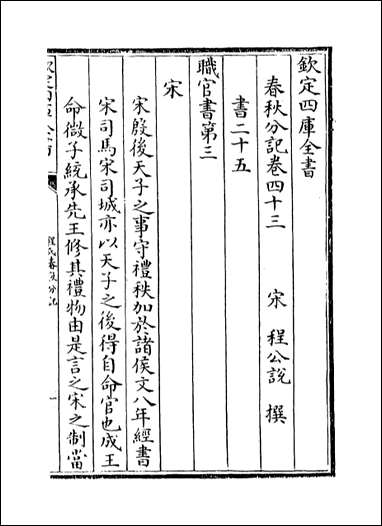 欽定四庫全書
春秋分記卷四十三　　宋　程公說　撰
書二十五
職官書第三
宋
宋殷後天子之事守禮秩加於諸侯文八年經書
宋司馬宋司城亦以天子之後得自命官也成王
命微子統承先王修其禮物由是言之宋之制當
欽定四庫全書
程氏春秋分記
一